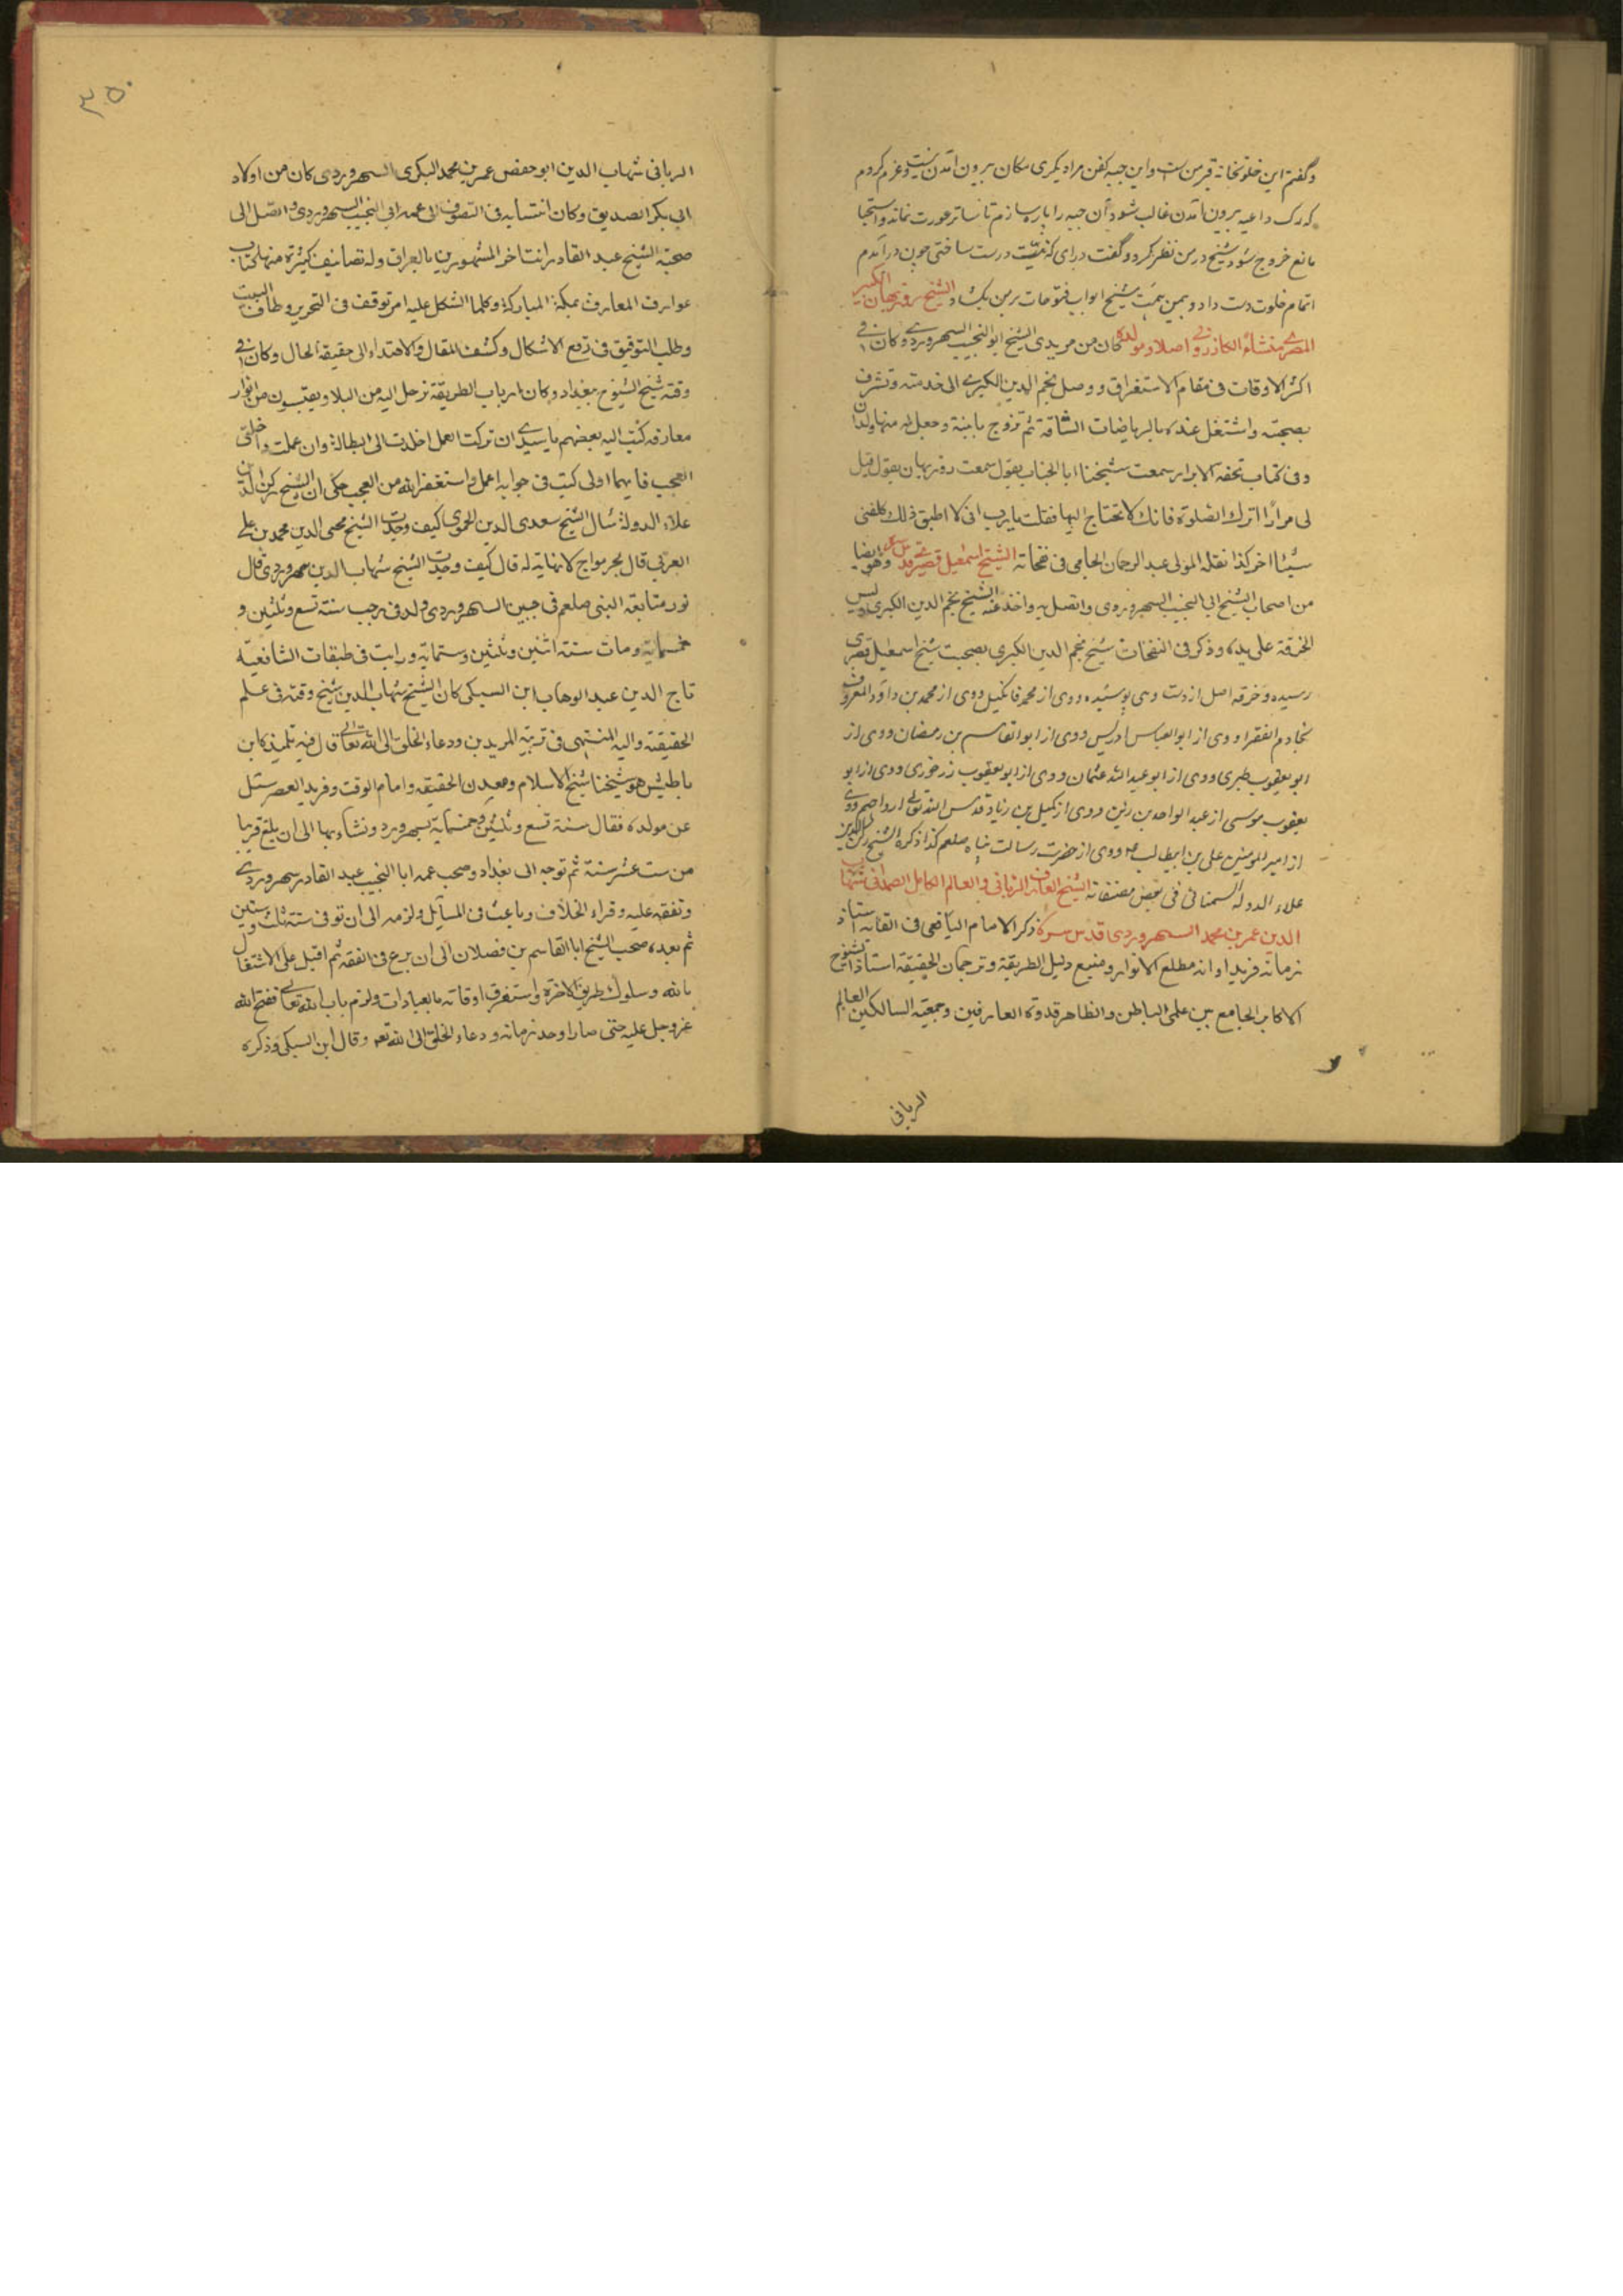 وگفتم این خلوتخانه قبر من است واین جبه کفن مرا دیگری مکان بیرون آمدن نیست وعزم کردم
که رک داعیه بیرون آمدن غالب شود آن جبه را پاره سازم تا ساتر عورت نماند واستحیا
مانع خروج شود شیخ در من نظر کرد وگفت درای که نیت درست ساختی چون در آمدم
اتمام خلوت دست داد وبیمن همت شیخ ابواب فتوحات بر من بکشاد الشیخ روزبهان الکبیر
المصری منشاءً الکازرونی اصلا ومولدا کان من مریدی الشیخ ابو النجیب السهروردی وکان فی
اکثر الاوقات فی مقام الاستغراق ووصل نجم الدین الکبری الی خدمته وتشرف
بصحبته واشتغل عنده بالریاضات الشاقة ثم تزوج بابنته وحصل له منها ولدان
وفی کتاب تحفه الابرار سمعت شیخنا ابا الجناب یقول سمعت روزبهان یقول قیل
لی مرارا اترک الصلوة فانک لا تحتاج الیها فقلت یا رب انی لا اطیق ذلک کلفنی
شیئا اخر کذا نقله المولی عبد الرحمان الجامی فی نفحاته الشیخ اسمعیل قصری قدس سره وهو ایضا
من اصحاب الشیخ ابی النجیب السهروردی واتصل به واخذ عنه الشیخ نجم الدین الکبری ولبس
الخرقة علی یده وذکر فی النفحات شیخ نجم الدین الکبری بصحبت شیخ اسمعیل قصری
رسیده وخرقه اصل از دست وی پوشیده ووی از محمد مانکیل ووی از محمد بن داود المعروف
بخادم الفقرا ووی از ابو العباس ادریس ووی از ابو القاسم بن رمضان ووی از
ابو یعقوب طبری ووی از ابو عبد الله عثمان ووی از ابو یعقوب نهرجوری ووی از ابو
یعقوب موسی از عبد الواحد بن زید ووی از کمیل بن زیاد قدس الله تعالی ارواحهم ووی
از امیر المومنین علی بن ابیطالب ووی از حضرت رسالت پناه صلعم کذا ذکره الشیخ رکن الدین
علاء الدوله السمنانی فی بعض مصنفاته الشیخ العارف الربانی والعالم الکامل الصمدانی شهاب
الدین عمر بن محمد السهروردی قدس سره ذکر الامام الیافعی فی القابه استاذ
زمانه فرید اوانه مطلع الانوار ومنبع دلیل الطریقة وترجمان الحقیقة استاذ الشیوخ
الاکابر الجامع بین علمی الباطن والظاهر قدوة العارفین وجمعیة السالکین العالم
الربانی
٣٥٠
الربانی شهاب الدین ابو حفص عمر بن محمد البکری السهروردی کان من اولاد
ابی بکر الصدیق وکان انتسابه فی التصوف الی عمه ابی النجیب السهروردی واتصل الی
صحبة الشیخ عبد القادر انت اخر المشهورین بالعراق وله تصانیف کثیرة منها کتاب
عوارف المعارف بمکة المبارکة وکلما اشکل علیه امر توقف فی التحریر وطاف البیت
وطلب التوفیق فی رفع الاشکال وکشف المقال والاهتداء الی حقیقة الحال وکان فی
وقته شیخ الشیوخ ببغداد وکان ارباب الطریقة ترحل الیه من البلاد ویقتبسون من انوار
معارفه کتب الیه بعضهم یا سیدی ان ترکت العمل اخلدت الی البطالة وان عملت داخلنی
العجب فایهما اولی کتب فی جوابه اعمل واستغفر الله من العجب حکی ان الشیخ رکن الدین
علاء الدولة سأل الشیخ سعدی الدین الحموی کیف وجدت الشیخ محیی الدین محمد بن علی
العربی قال بحر مواج لا نهایة له قال کیف وجدت الشیخ شهاب الدین سهروردی قال
نور متابعة النبی صلعم فی جبین السهروردی ولد فی رجب سنة تسع وثلثین و
خمسمایة ومات سنة اثنین وثلثین وستمایة ورایت فی طبقات الشافعیة
تاج الدین عبد الوهاب ابن السبکی کان الشیخ شهاب الدین شیخ وقته فی علم
الحقیقة والیه المنتهی فی تربیة المریدین ودعاء الخلق الی الله تعالی قال فیه تلمیذه ابن
باطیش هو شیخنا شیخ الاسلام ومعدن الحقیقة وامام الوقت وفرید العصر سئل
عن مولده فقال سنة تسع وثلثین وخمسمایة بسهرورد ونشاء بها الی ان بلغ قریبا
من ست عشر سنة ثم توجه الی بغداد وصحب عمه ابا النجیب عبد القادر سهروردی
وتفقه علیه وقراء الخلاف وباحث فی المسائل ولزمه الی ان توفی سنة ثلث وستین
ثم بعده صحب الشیخ ابا القاسم بن فضلان الی ان برع فی الفقه ثم اقبل علی الاشتغال
بالله وسلوک طریق الاخرة واستغرق اوقاته بالعبادات ولزم باب الله تعالی ففتح الله
عز وجل علیه حتی صار اوحد زمانه ودعاء الخلق الی الله تعه وقال ابن السبکی وذکره